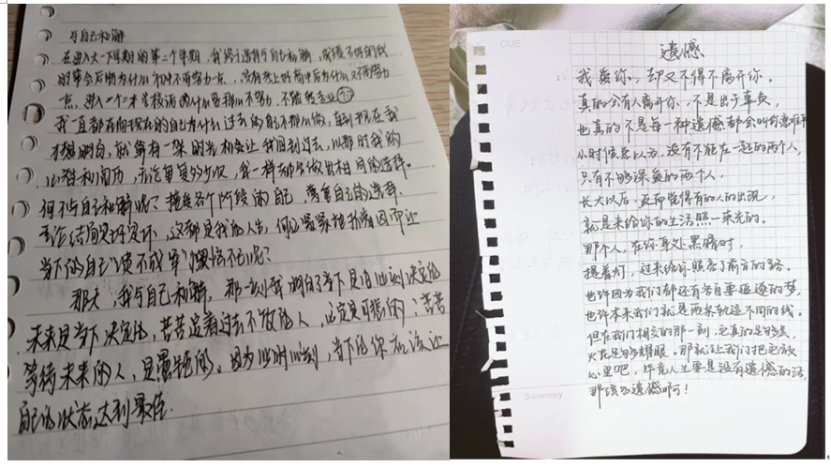 与自己和解
在进入大一下学期的第二个学期，我终于选择与自己和解，成绩不好的我
时常会后悔为什么初中不再努力一点，没有考上好高中后为什么又不再努力
一点，进入一个二本学校后为什么还那么不努力，不能转专业
我一直都在问现在的自己为什么过去的自己那么做，直到现在我
才想明白，就算有一架时光机会让我回到过去，以那时我的
心智和阅历，无论重复多少次，我一样都会做出相同的选择。
何不与自己和解呢？接受各个阶段的自己，尊重自己的选择，
无论结局是好是坏，这都是我的人生，何必紧紧抓着因而让
当下的自己懊恼不已呢？
那天，我与自己和解，那一刻我明白了当下是由过去决定的
未来是当下决定的，苦苦追着过去不放的人，一定是可悲的；苦苦
等待未来的人，是愚钝的。因为此时此刻，当下的你应该让
自己的状态达到最佳.
CUE
遗憾
我爱你，却又不得不离开你。
真的会有人离开你，不是出于辜负，
也真的不是每一种遗憾都会叫有意难平
小时候总以为，没有不能在一起的两个人，
只有不够深爱的两个人，
长大以后，反而觉得有的人的出现，
就是来给你的生活照一束光的。
那个人，在你身处黑暗时，
提着灯，过来给你照亮了前方的路。
也许因为我们都还有各自要追逐的梦，
也许本来我们就是两条轨迹不同的线。
但在我们相交的那一刻，它真的足够美，
火花足够耀眼。那就让我们把它放
心里吧，毕竟人生要是没有遗憾的话，
那该多遗憾啊！
Summary